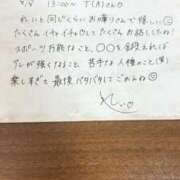 4/8 13:00〜 T(A)さん♡
れいと同じくらいお喋りさんで嬉しい☺
たくさんイチャイチャしてたくさんお話したね!
スポーツ万能なこと、〇〇を鍛えれば
が強くなること、苦手な人種のこと(笑)
楽しすぎて最後バタバタしてごめんね
れい♡